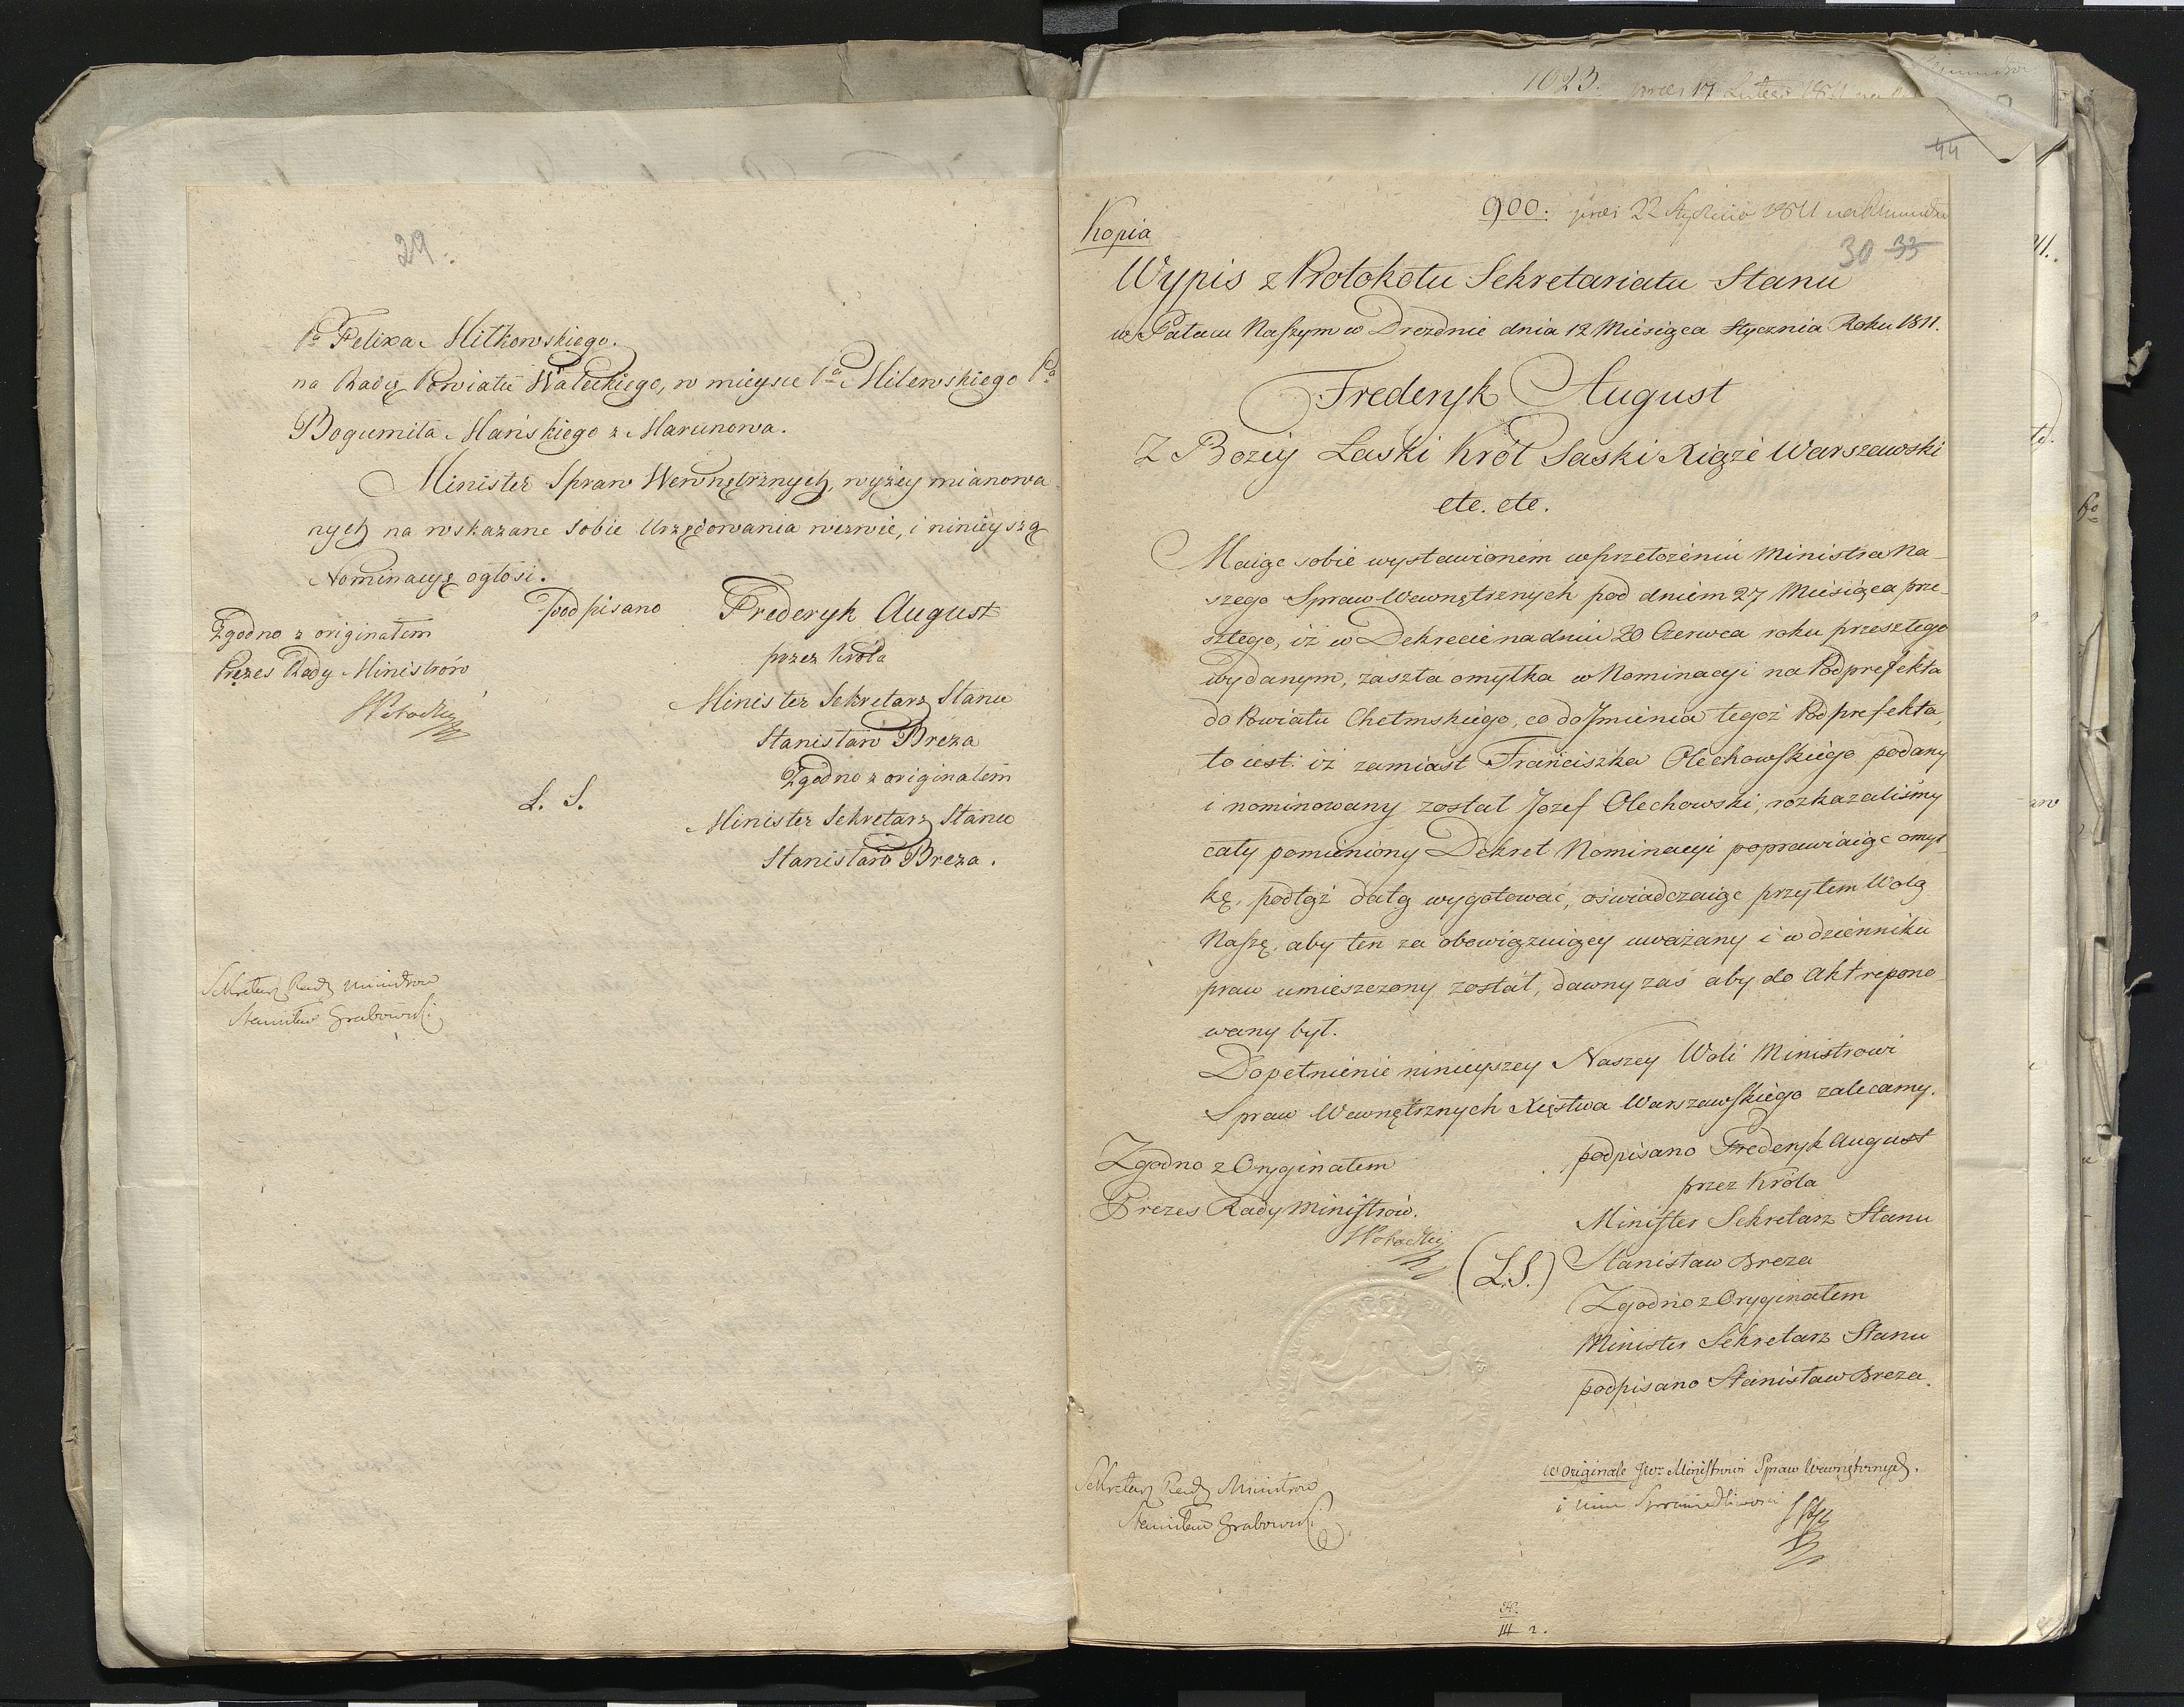 29.
Pa Felixa Mitkowskiego.
na Radcę Powiatu Wałeckiego, w mieysce Pa Milewskiego Pa
Bogumiła Mańskiego z Marunowa.
Minister Spraw Wewnętrznych, wyżey mianowa
nych na wskazane sobie Urzędowania wezwie, i ninieyszą
Nominacyę ogłosi.
podpisano Frederyk August
przez Króla
Minister Sekretarz Stanu
Stanisław Breza
Zgodno z originałem
Minister Sekretarz Stanu
Stanisław Breza.
L. S.
Zgodno z originałem
Prezes Rady Ministrów
Sekretarz Rady Ministrow
Stanisław Grabowski
1023. 17 Lutego 1811
44
900. 22 Stycznia 1811
30 33
Kopia
Wypis z Protokołu Sekretariatu Stanu
w Pałacu Naszym w Dreznie dnia 12 Miesiąca Stycznia Roku 1811.
Frederyk August
Z Bożey Łaski Król Saski Xiąże Warszawski
etc. etc.
Maiąc sobie wystawionem w przełożeniu Ministra Na-
szego Spraw Wewnętrznych pod dniem 27 Miesiąca prze-
szłego, iż w Dekrecie na dniu 20 Czerwca roku przeszłego
wydanym, zaszła omyłka w Nominacyi na Podprefekta
do Powiatu Chełmskiego, co do Jmienia tegoż Podprefekta,
to iest: iż zamiast Franciszka Olechowskiego podany
i nominowany został Jozef Olechowski, rozkazaliśmy
cały pomieniony Dekret Nominacyi poprawiaiąc omył-
kę, pod tąż datą wygotować, oświadczaiąc przytem Wolą
Naszę, aby ten za obowięzuiący uważany i w dzienniku
praw umieszczony został, dawny zaś aby do Akt repono-
wany był.
Dopełnienie ninieyszey Naszey Woli Ministrowi
Spraw Wewnętrznych Xięstwa Warszawskiego zalecamy.
podpisano Frederyk August
przez Króla
Minister Sekretarz Stanu
(L.S.) Stanisław Breza
Zgodno z Oryginałem
Minister Sekretarz Stanu
podpisano Stanisław Breza.
Zgodno z Oryginałem
Prezes Rady Ministrów.
Sekretarz Rady Ministrow
Stanisław Grabowski
w Originale JW. Ministrowi Spraw Wewnętrznych.
i Sprawiedliwości